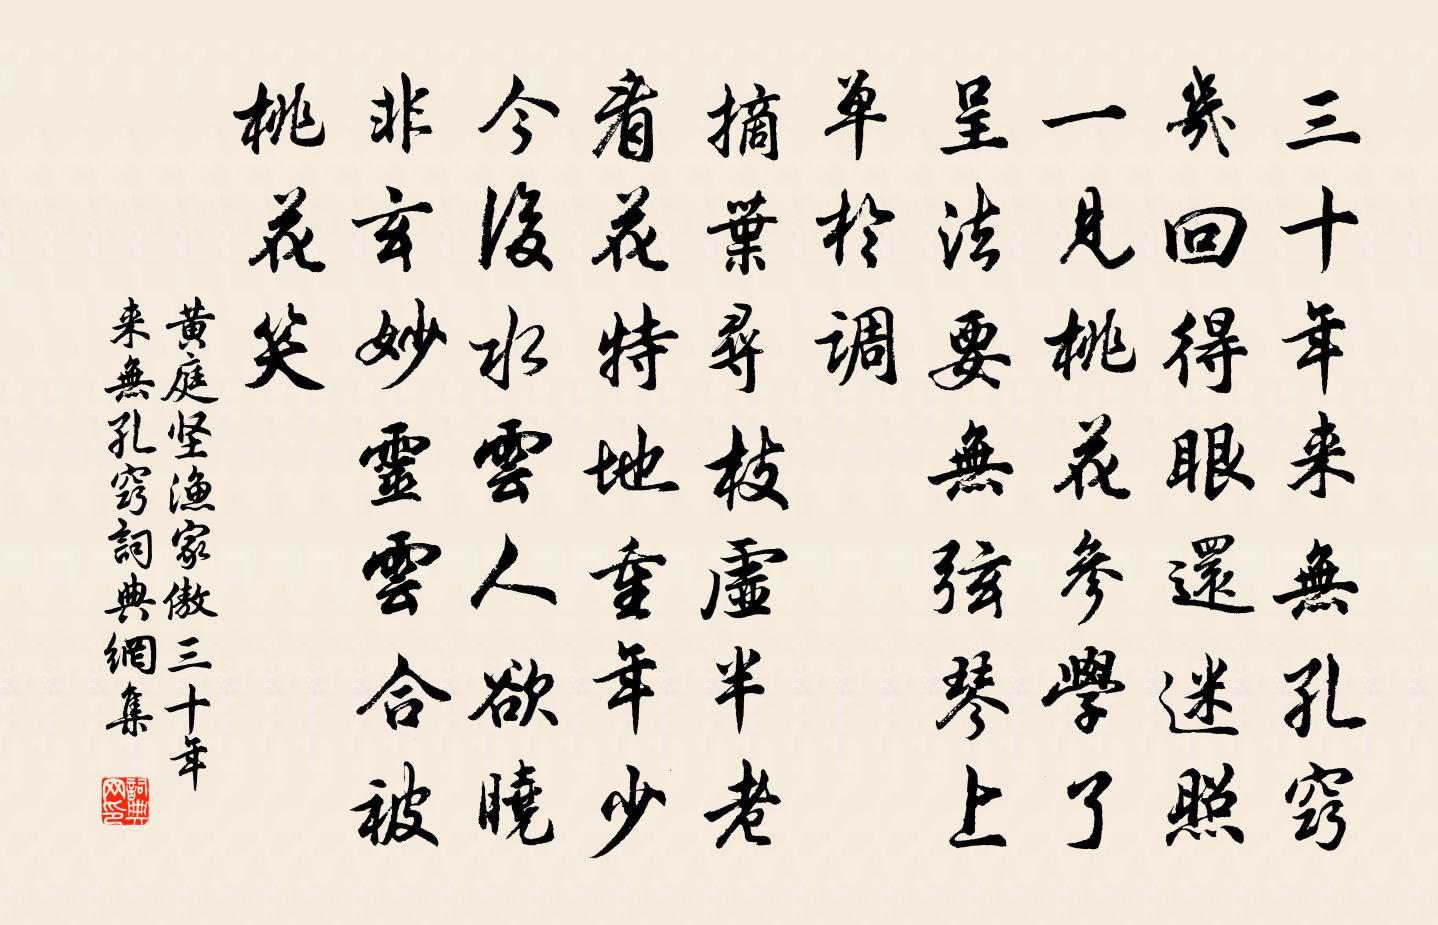 三十年来無孔窍
幾回得眼還迷照
一見桃花參學了
呈法要無弦琴上
单於调
摘葉尋枝虛半老
看花特地重年少
今後水雲人欲曉
非玄妙靈雲合被
桃花笑
黄庭坚渔家傲三十年
来無孔窍詞典網集
詞典网印